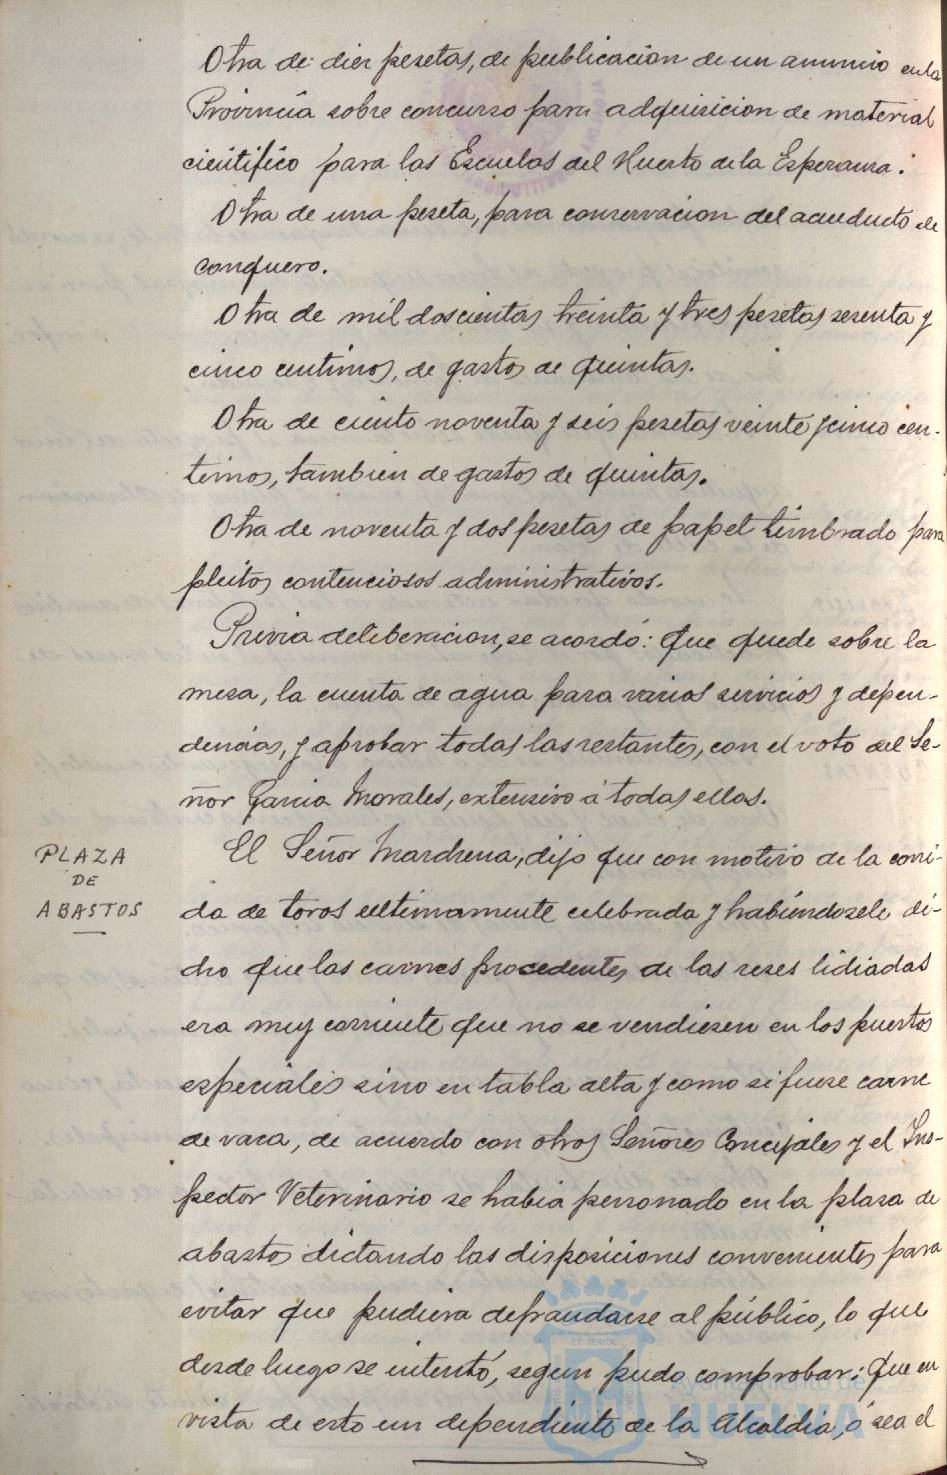 Otra de diez pesetas, de publicacion de un anuncio en la
Provincia sobre concurso para adquisicion de material
cientifico para las Escuelas del Huerto de la Esperanza.
Otra de una peseta, para conservacion del acueducto de
conquero.
Otra de mil doscientas treinta y tres pesetas sesenta y
cinco centimos, de gastos de quintas.
Otra de ciento noventa y seis pesetas veinte y cinco cen-
timos, tambien de gastos de quintas.
Otra de noventa y dos pesetas de papel timbrado para
pleitos contenciosos administrativos.
Previa deliberacion, se acordó: Que quede sobre la
mesa, la cuenta de agua para varios servicios y depen-
dencias, y aprobar todas las restantes, con el voto del Se-
ñor Garcia Morales, extensivo á todas ellas.
PLAZA
DE
ABASTOS
El Señor Marchena, dijo que con motivo de la corri-
da de toros ultimamente celebrada y habiendosele di-
cho que las carnes procedentes de las reses lidiadas
era muy corriente que no se vendiesen en los puestos
especiales sino en tabla alta y como si fuese carne
de vaca, de acuerdo con otros Señores Concejales y el Ins-
pector Veterinario se habia personado en la plaza de
abastos dictando las disposiciones convenientes para
evitar que pudiera defraudarse al público, lo que
desde luego se intentó, segun pudo comprobar: Que en
vista de esto un dependiente de la Alcaldia, ó sea el
Ayuntamiento de
HUELVA